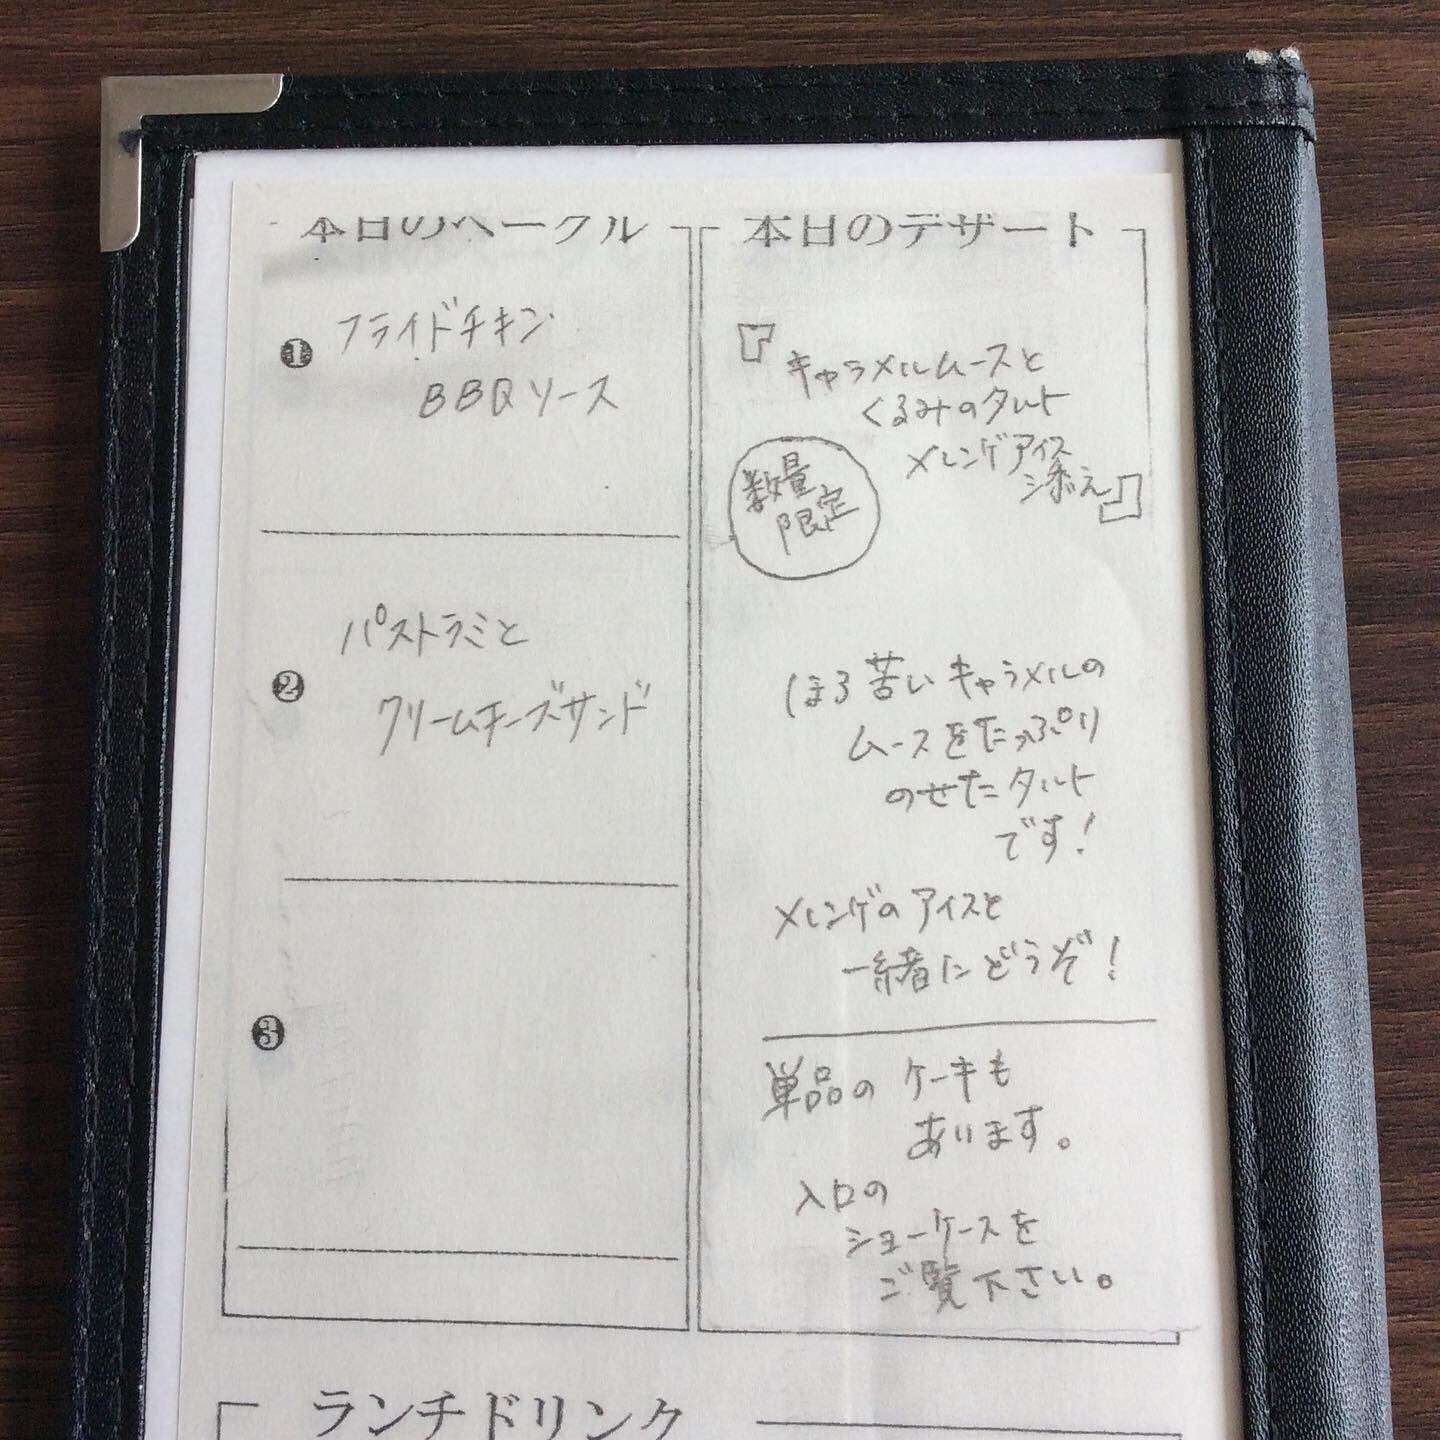 本日のベーグル
❶
フライドチキン
BBQソース
❷
パストラミと
クリームチーズサンド
❸
本日のデザート
『キャラメルムースと
くるみのタルト
メレンゲアイス
添え』
数量
限定
ほろ苦いキャラメルの
ムースをたっぷり
のせたタルト
です!
メレンゲのアイスと
一緒にどうぞ!
単品のケーキも
あります。
入口の
ショーケースを
ご覧下さい。
ランチドリンク